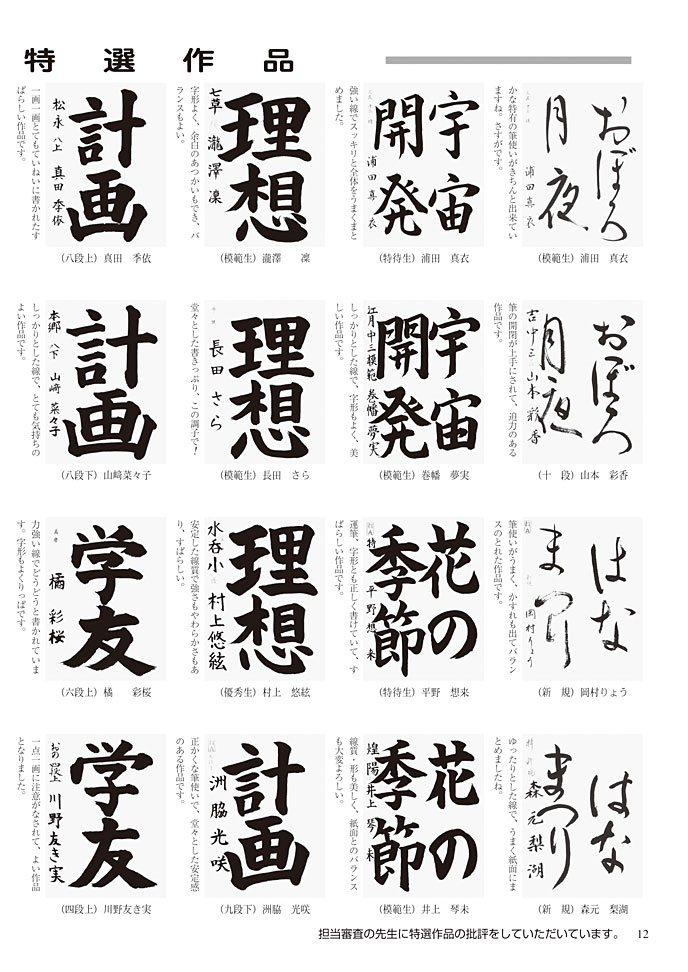 特選作品
おぼろ
月夜
浦田真衣
かな特有の筆使いがきちんと出来てい
ますね。さすがです。
(模範生) 浦田 真衣
宇宙
開発
浦田真衣
強い線でスッキリと全体をうまくまと
めました。
(特待生) 浦田 真衣
理想
七草 瀧澤凜
字形よく、余白のあつかいもでき、バ
ランスもよい。
(模範生) 瀧澤 凜
計画
松永 八上 真田季依
一画一画とてもていねいに書かれたす
ばらしい作品です。
(八段上) 真田 季依
おぼろ
月夜
吉中三 山本彩香
筆の開閉が上手にされて、迫力のある
作品です。
(十 段) 山本 彩香
宇宙
開発
江月中二模範 巻幡夢実
しっかりとした線で、字形もよく、美
しい作品です。
(模範生) 巻幡 夢実
理想
長田さら
堂々とした書きっぷり、この調子で!
(模範生) 長田 さら
計画
本郷 八下 山﨑菜々子
しっかりとした線で、とても気持ちの
よい作品です。
(八段下) 山﨑菜々子
はな
まつり
岡村りょう
筆使いがうまく、かすれも出てバラン
スのとれた作品です。
(新 規) 岡村りょう
花の
季節
特 平野想来
運筆、字形とも正しく書けていて、す
ばらしい作品です。
(特待生) 平野 想来
理想
水呑小 村上悠絃
安定した線質で強さもやわらかさもあ
り、すばらしい。
(優秀生) 村上 悠絃
学友
橘彩桜
力強い線でどうどうと書かれていま
す。字形もよくりっぱです。
(六段上) 橘 彩桜
はな
まつり
森元梨湖
ゆったりとした線で、うまく紙面にま
とめましたね。
(新 規) 森元 梨湖
花の
季節
煌陽 井上琴未
線質・形も美しく、紙面とのバランス
も大変よろしい。
(模範生) 井上 琴未
計画
洲脇光咲
正かくな筆使いで、堂々とした安定感
のある作品です。
(九段下) 洲脇 光咲
学友
川野友き実
一点一画に注意がなされて、よい作品
となりました。
(四段上) 川野友き実
担当審査の先生に特選作品の批評をしていただいています。 12